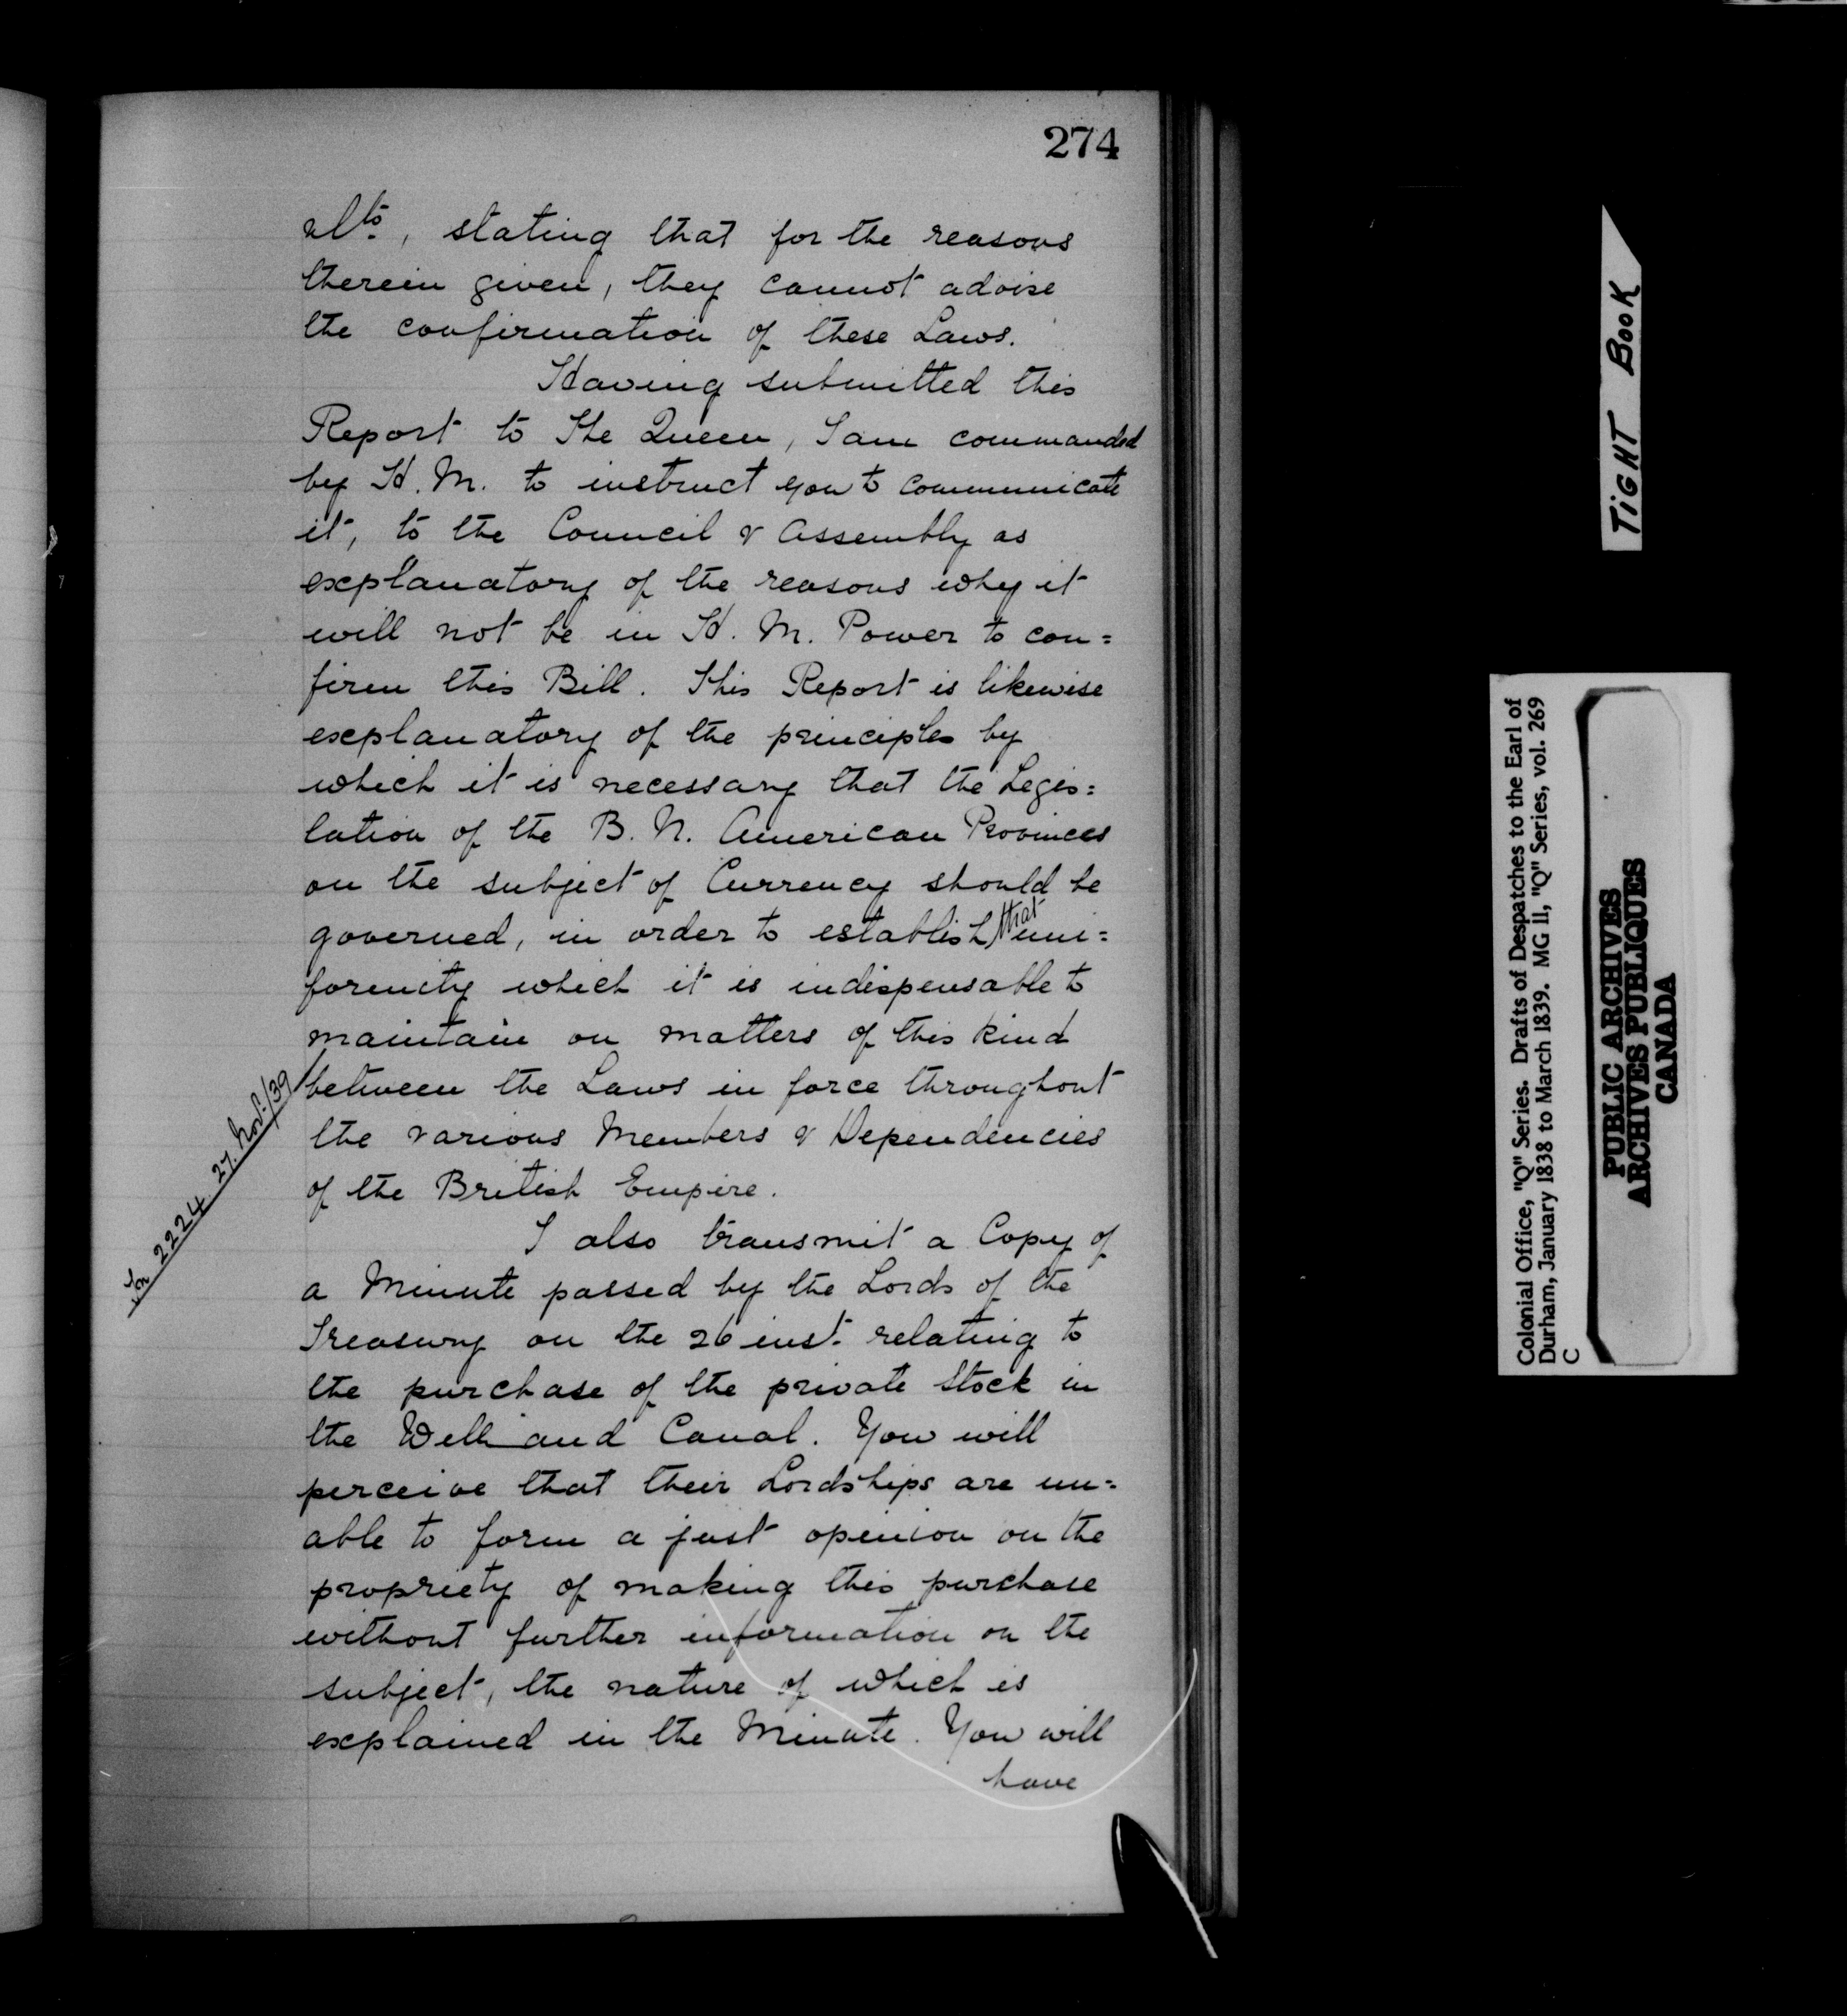 274
ulto, stating that for the reasons
therein given, they cannot advise
the confirmation of these Laws.
Having submitted this
Report to The Queen, I am commanded
by H. M. to instruct you to communicate
it, to the Council & Assembly as
explanatory of the reasons why it
will not be in H. M. Power to con=
firm this Bill. This Report is likewise
explanatory of the principles by
which it is necessary that the Legis=
lation of the B. N. American Provinces
on the subject of Currency should be
governed, in order to establish that uni=
formity which it is indispensable to
maintain on matters of this kind
between the Laws in force throughout
the various Members & Dependencies
of the British Empire.
I also transmit a Copy of
a Minute passed by the Lords of the
Treasury on the 26 inst. relating to
the purchase of the private Stock in
the Welland Canal. You will
perceive that their Lordships are un=
able to form a just opinion on the
propriety of making this purchase
without further information on the
subject, the nature of which is
explained in the Minute. You will
have
2224 27. Nov./39
TIGHT BOOK
Colonial Office, "Q" Series. Drafts of Despatches to the Earl of
Durham, January 1838 to March 1839. MG 11, "Q" Series, vol. 269
C
PUBLIC ARCHIVES
ARCHIVES PUBLIQUES
CANADA